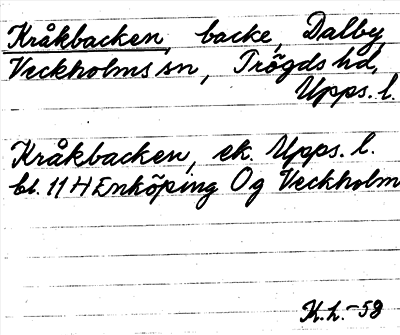 Kråkbacken, backe, Dalby,
Veckholms sn, Trögds hd,
Upps. l.
Kråkbacken, ek. Upps. l.
bl. 11 H Enköping Og Veckholm
K.L.-59